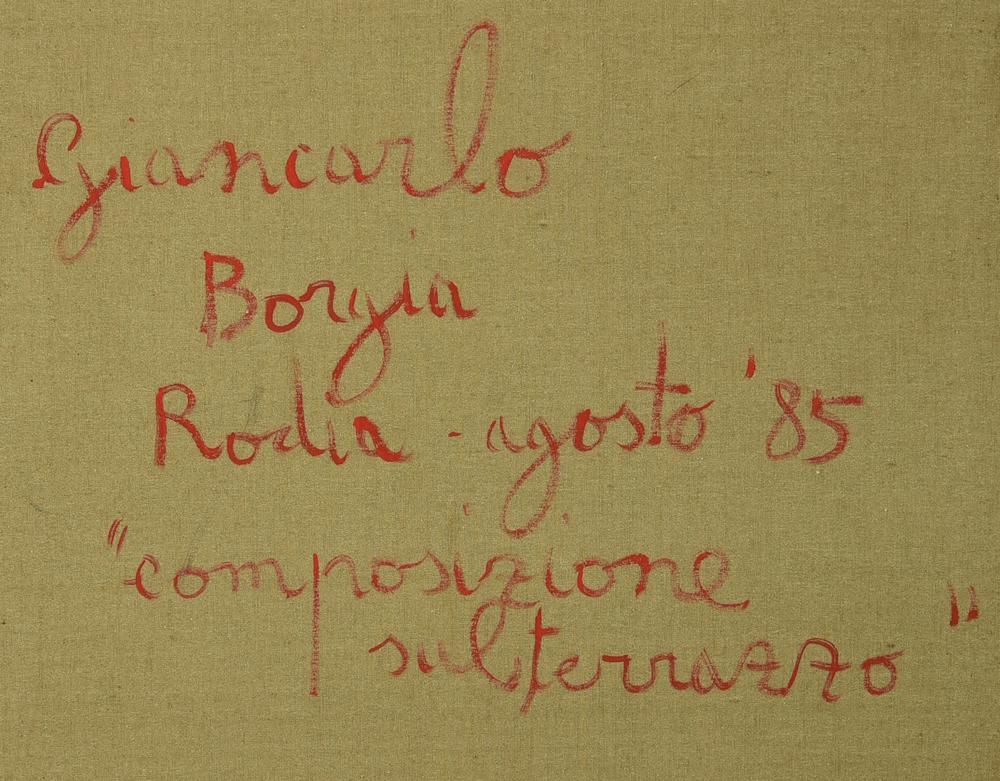 Giancarlo
Borgia
Rodia - agosto '85
"composizione
sul terrazzo"